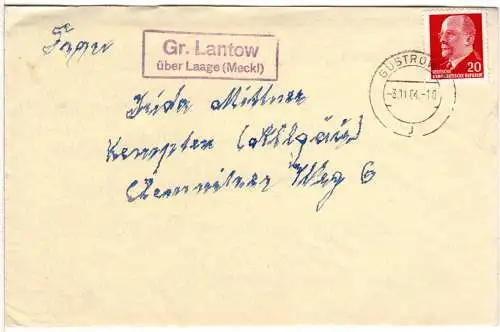 Gr. Lantow
über Laage (Meckl)
GÜSTROW
-3.11.64.-18
J
DEUTSCHE
DEMOKRATISCHE REPUBLIK
20
Frau
Frida Mittner
Kempten (Allgäu)
Chemnitzer Weg 6